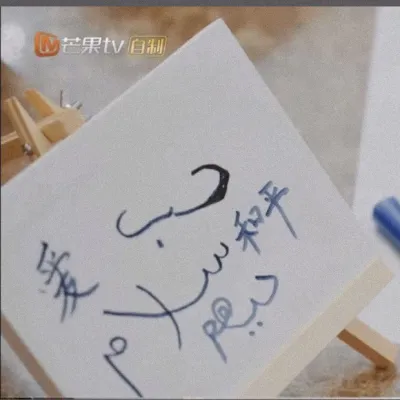 芒果tv 自制
爱 حب
سلام 和平